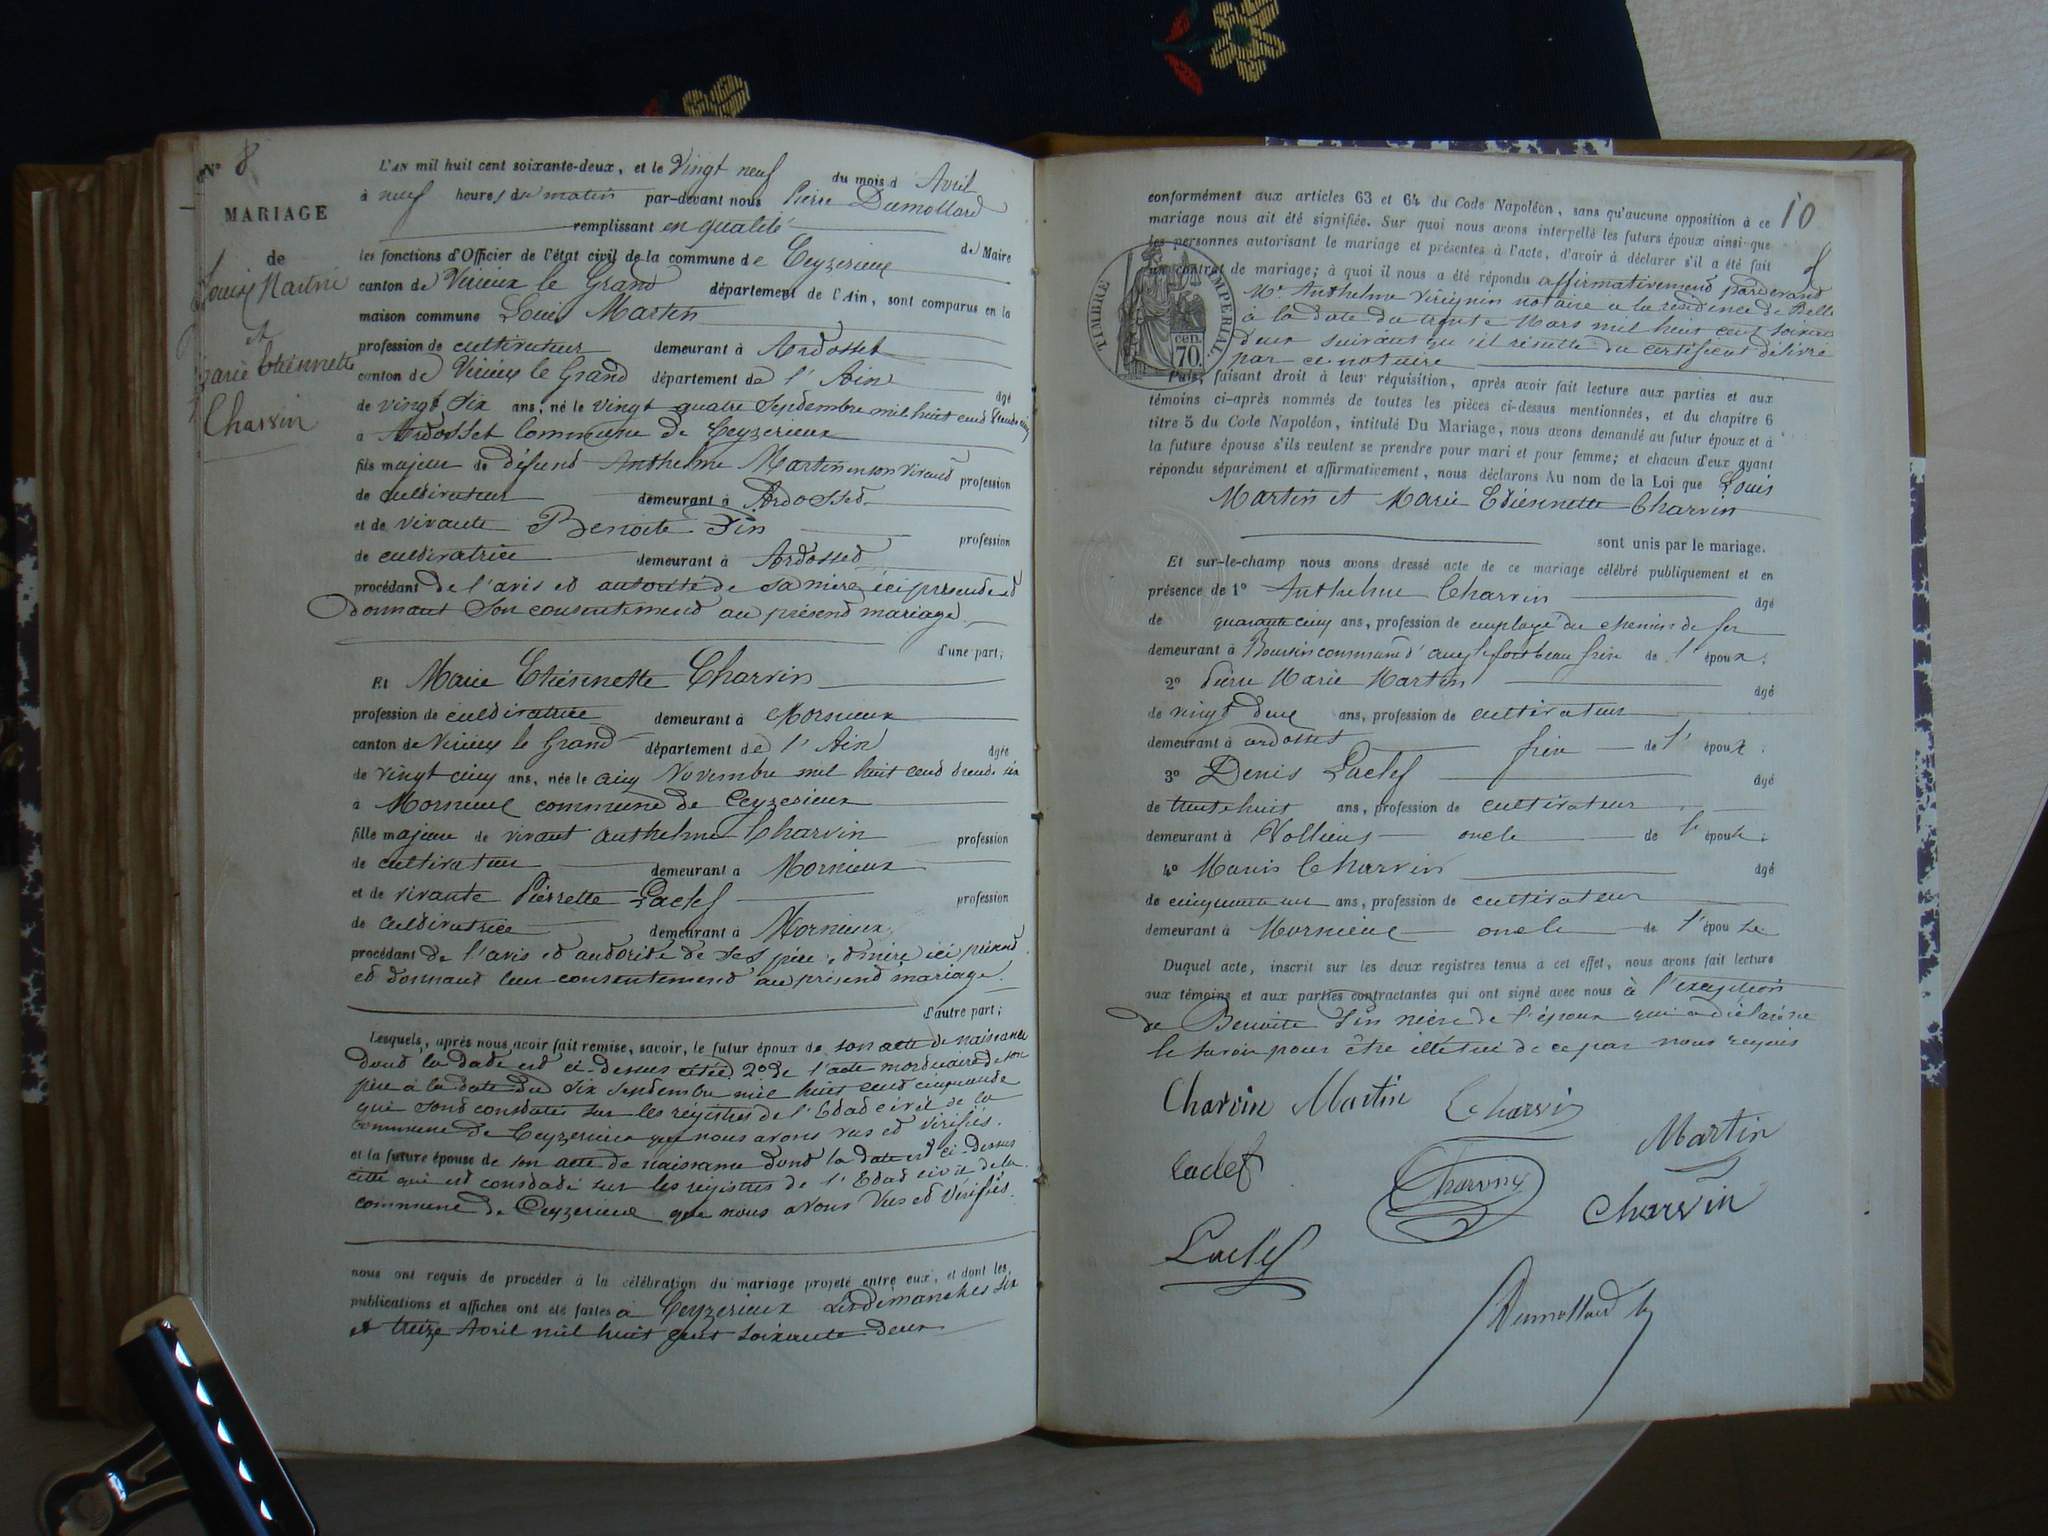 N° 8
MARIAGE
de
Louis Martin
et
Marie Etiennette
Charvin
L'AN mil huit cent soixante-deux, et le Vingt neuf du mois d Avril
à neuf heures du matin par-devant nous Pierre Dumollard
remplissant en qualité de Maire
les fonctions d'Officier de l'état civil de la commune de Ceyzerieux
canton de Virieux le Grand département de l'Ain, sont comparus en la
maison commune Louis Martin
profession de cultivateur demeurant à Ardosset
canton de Virieux le Grand département de l'Ain âgé
de vingt six ans, né le vingt quatre Septembre mil huit cend trente cinq
à Ardosset Commune de Ceyzerieux
fils majeur de défund Anthelme Martin en son vivand profession
de cultivateur demeurant à Ardossed
et de vivante Benoite Pin profession
de culdivatrice demeurant à Ardossed
procédant de l'avis ed autorité de sa mère ici présende ed
donnant son consentemend au présend mariage
d'une part;
Et Marie Etiennette Charvin
profession de culdivatrice demeurant à Mornieux
canton de Virieux le Grand département de l'Ain âgée
de vingt cinq ans, née le cinq Novembre mil huit cend drende six
à Mornieux commune de Ceyzerieux
fille majeure de vivant Anthelme Charvin profession
de cultivateur demeurant à Mornieux
et de vivante Pierrette Laclef profession
de culdivatrice demeurant à Mornieux
procédant de l'avis ed audorité de ses père et mère ici présend
ed donnand leur consentemend au présend mariage
d'autre part;
Lesquels, après nous avoir fait remise, savoir, le futur époux de son acte de naissance
dond la dade esd ci-dessus citée 2° de l'acte morduaire de son
père à la date du six sepdembre mil huit cend cinquande
qui sond consdatés sur les régistres de l'Edad civil de la
commune de Ceyzerieux que nous avons vus ed vérifiés.
et la future épouse de son acte de naissance dond la date esd ci-dessus
citée qui esd consdadé sur les régistres de l'Edad civil de la
commune de Ceyzerieux que nous avons Vus ed Vérifiés.
nous ont requis de procéder à la célébration du mariage projeté entre eux, et dont les
publications et affiches ont été faites à Ceyzerieux les dimanches six
et treize Avril mil huit cent soixante deux
10
conformément aux articles 63 et 64 du Code Napoléon, sans qu'aucune opposition à ce
mariage nous ait été signifiée. Sur quoi nous avons interpellé les futurs époux ainsi que
les personnes autorisant le mariage et présentes à l'acte, d'avoir à déclarer s'il a été fait
un contrat de mariage; à quoi il nous a été répondu affirmativemend pardevand
Me Anthelme notaire à la résidence de Belley
à la date du trente Mars mil huit cent soixante
deux suivant qu'il résulte du certificat délivré
par ce notaire
TIMBRE IMPERIAL.
70. cen.
Puis, faisant droit à leur réquisition, après avoir fait lecture aux parties et aux
témoins ci-après nommés de toutes les pièces ci-dessus mentionnées, et du chapitre 6
titre 5 du Code Napoléon, intitulé Du Mariage, nous avons demandé au futur époux et à
la future épouse s'ils veulent se prendre pour mari et pour femme; et chacun d'eux ayant
répondu séparément et affirmativement, nous déclarons Au nom de la Loi que Louis
Martin et Marie Etiennette Charvin
sont unis par le mariage.
Et sur-le-champ nous avons dressé acte de ce mariage célébré publiquement et en
présence de 1° Anthelme Charvin âgé
de quarante cinq ans, profession de employé du chemin de fer
demeurant à commune d' beau frère de l'époux.
2° Pierre Marie Martin âgé
de vingt deux ans, profession de cultivateur
demeurant à ardosset frère de l'époux.
3° Denis Laclef âgé
de trente huit ans, profession de cultivateur
demeurant à Vollien oncle de l'épouse.
4° Marin Charvin âgé
de cinquante un ans, profession de cultivateur
demeurant à Mornieux oncle de l'épouse
Duquel acte, inscrit sur les deux registres tenus à cet effet, nous avons fait lecture
aux témoins et aux parties contractantes qui ont signé avec nous à l'exception
de Benoite Pin mère de l'époux qui a déclaré ne
le savoir pour être illétrée de ce par nous requis
Charvin Martin Charvin
Martin
Laclef
Charvin
Charvin
Laclef
Dumollard